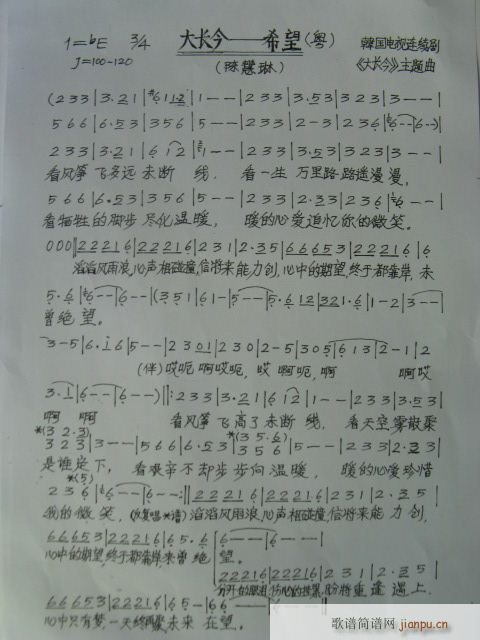 1=bE 3/4 大长今——希望(粤) 韓国电视连续剧
♩=100-120 (陈慧琳) 《大长今》主题曲
(2 3 3|3·2 1|6 1 1 2|1 - -|2 3 3|3·5 3|3 2 3|3 - -|
5 6 6|6·5 3|3 5 6|5 - -|2 3 3|2 - 3|2 3 6|6 - -|6 - -)|
2 3 3|3·2 1|6 1 2|1 - -|2 3 3|3·5 3|3 2 3|3 - -|
看风筝 飞多远 未断 线, 看一生 万里路 路遥漫漫,
5 6 6|6·5 3|3 5 6|5 - -|2 3 3|2·3 3|2 3 6|6 - -|
看牺牲 的脚步 尽化温暖, 暖的心爱追忆你的微笑。
0 0 0||2 2 2 1 6|2 2 2 1 6|2 3 1|2·3 5|6 6 6 5 3|2 2 2 1 6|6
滔滔风雨浪,心声相碰撞,信将来能力创,心中的期望,终于都靠岸,未
5·6|6 - -|6 - -|(3 5 1|6 1 -|5 - -|5·6 1 2|3 2 1·6|1 - 2|3 - -|
曾绝 望。
3 - 5|6·1 6|5 - -|2 3 0 1|2 3 0|2 - 5|3 0 5|6 1 3|2 - 1|2
(伴)哎呃 啊哎呃, 哎 啊呃,啊 啊哎
3·1|6 - -|6 - -)||:2 3 3|3·2 1|6 1 2|1 - -|2 3 3|3·5 3|
啊 啊 看风筝 飞高了 未断 线, 看天空 零散聚
*(3 2·3) *(3 5·6)
3 2 3|3 - -|5 6 6|6·5 3|3 5 6|5 - -|2 3 3|2·3 3|
是谁定下, 看艰辛 不却步 步向温暖, 暖的心爱珍惜
*(5)
2 3 6|6 - -|6 - -:||2 2 2 1 6|2 2 2 1 6|2 3 1|2·3 5|
我的微 笑, (恢复唱*谱)滔滔风雨浪,心声相碰撞,信将来能力创,
6 6 6 5 3|2 2 2 1 6|6 5·6|6 - -|6 - -|
心中的期望,终于都靠岸未曾绝 望。
2 2 2 1 6|2 2 2 1 6|2 3 1|2·3 5|
盼将重 逢 遇上.
6 6 6 5 3|2 2 2 1 6|6 5 -|6 - -|6 - -||
心中只有梦一天终再聚未来 在望。
歌谱简谱网
jianpu.cn